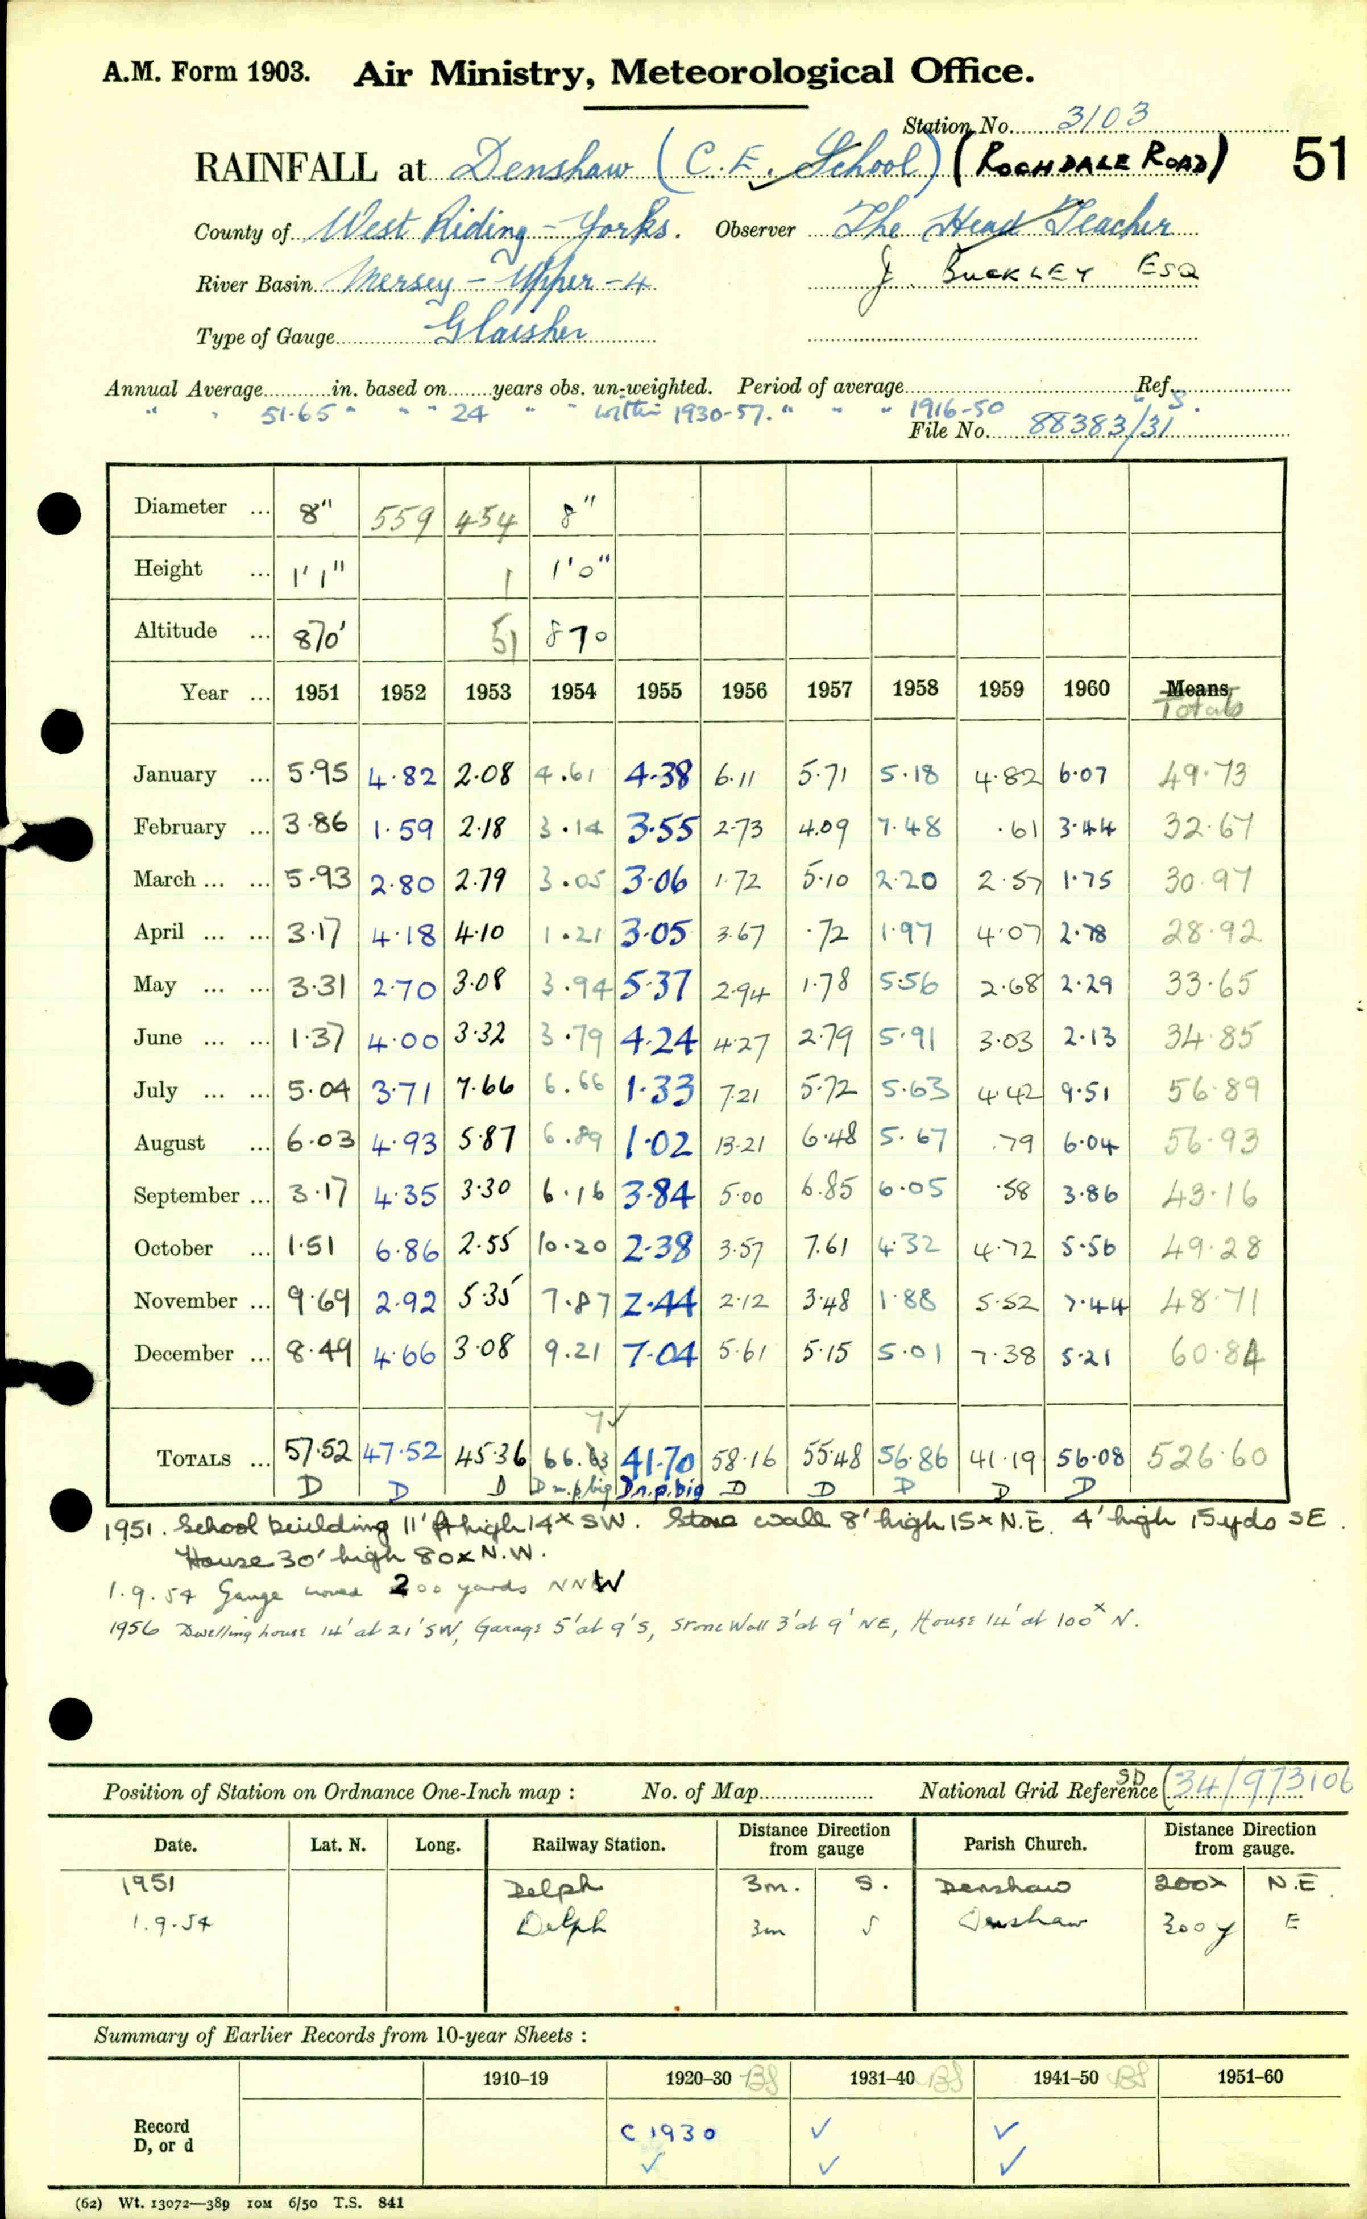 A.M. Form 1903. Air Ministry, Meteorological Office.
Station No. 3103
RAINFALL at Denshaw (C.E. School) (ROCHDALE ROAD) 51
County of West Riding - Yorks. Observer The Head Teacher
River Basin Mersey - Upper - 4 J. BUCKLEY ESQ
Type of Gauge Glaisher
Annual Average in. based on years obs. un-weighted. Period of average Ref.
" " 51.65 " " " 24 " " within 1930-57. " " " 1916-50 " S.
File No. 88383/31
Diameter ... 8" 559 454 8"
Height ... 1'1" 1 1'0"
Altitude ... 870' 51 870
Year ... 1951 1952 1953 1954 1955 1956 1957 1958 1959 1960 Means Totals
January ... 5.95 4.82 2.08 4.61 4.38 6.11 5.71 5.18 4.82 6.07 49.73
February ... 3.86 1.59 2.18 3.14 3.55 2.73 4.09 7.48 .61 3.44 32.67
March ... ... 5.93 2.80 2.79 3.05 3.06 1.72 5.10 2.20 2.57 1.75 30.97
April ... ... 3.17 4.18 4.10 1.21 3.05 3.67 .72 1.97 4.07 2.78 28.92
May ... ... 3.31 2.70 3.08 3.94 5.37 2.94 1.78 5.56 2.68 2.29 33.65
June ... ... 1.37 4.00 3.32 3.79 4.24 4.27 2.79 5.91 3.03 2.13 34.85
July ... ... 5.04 3.71 7.66 6.66 1.33 7.21 5.72 5.63 4.42 9.51 56.89
August ... 6.03 4.93 5.87 6.89 1.02 13.21 6.48 5.67 .79 6.04 56.93
September ... 3.17 4.35 3.30 6.16 3.84 5.00 6.85 6.05 .58 3.86 43.16
October ... 1.51 6.86 2.55 10.20 2.38 3.57 7.61 4.32 4.72 5.56 49.28
November ... 9.69 2.92 5.35 7.87 2.44 2.12 3.48 1.88 5.52 7.44 48.71
December ... 8.49 4.66 3.08 9.21 7.04 5.61 5.15 5.01 7.38 5.21 60.84
7✓
TOTALS ... 57.52 47.52 45.36 66.63 41.70 58.16 55.48 56.86 41.19 56.08 526.60
D D D D n.p.big D n.p.big D D D D D
1951. School building 11' high 14x SW. Stone wall 8' high 15x N.E. 4' high 15yds SE.
House 30' high 80x N.W.
1.9.54 Gauge moved 200 yards NNW
1956 Dwelling house 14' at 21' SW, Garage 5' at 9' S, Stone Wall 3' at 9' NE, House 14' at 100x N.
Position of Station on Ordnance One-Inch map : No. of Map National Grid Reference SD (34/973106
Date. Lat. N. Long. Railway Station. Distance from gauge Direction Parish Church. Distance from gauge. Direction
1951 Delph 3m. S. Denshaw 200x N.E.
1.9.54 Delph 3m S Denshaw 300y E
Summary of Earlier Records from 10-year Sheets :
1910–19 1920–30 BS 1931–40 BS 1941–50 BS 1951–60
Record C 1930 ✓ ✓
D, or d ✓ ✓ ✓
(62) Wt. 13072—389 10M 6/50 T.S. 841